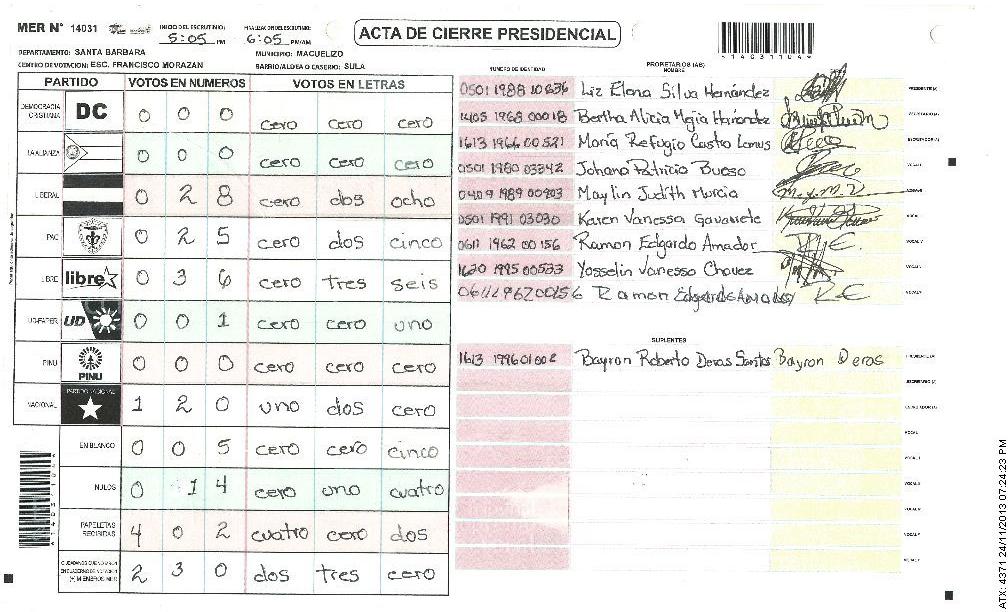 MER N° 14031
INICIO DEL ESCRUTINIO:
5:05 PM
FINALIZACION DEL ESCRUTINIO:
6:05 PM/AM
ACTA DE CIERRE PRESIDENCIAL
A14031104A
DEPARTAMENTO: SANTA BARBARA
MUNICIPIO: MACUELIZO
CENTRO DE VOTACION: ESC. FRANCISCO MORAZAN
BARRIO/ALDEA O CASERIO: SULA
PARTIDO VOTOS EN NUMEROS VOTOS EN LETRAS
DEMOCRACIA CRISTIANA DC 0 0 0 cero cero cero
LA ALIANZA 0 0 0 cero cero cero
LIBERAL 0 2 8 cero dos ocho
PAC 0 2 5 cero dos cinco
LIBRE libre 0 3 6 cero tres seis
UD-FAPER UD 0 0 1 cero cero uno
PINU PINU 0 0 0 cero cero cero
NACIONAL PARTIDO NACIONAL 1 2 0 uno dos cero
EN BLANCO 0 0 5 cero cero cinco
NULOS 0 1 4 cero uno cuatro
PAPELETAS RECIBIDAS 4 0 2 cuatro cero dos
(+) MIEMBROS MER 2 3 0 dos tres cero
PROPIETARIOS (AS)
NUMERO DE IDENTIDAD NOMBRE
0501 1988 10636 Liz Elena Silva Hernández PRESIDENTE (A)
1405 1968 00018 Bertha Alicia Mejia Hernández SECRETARIO (A)
1613 1966 00521 María Refugio Castro Lemus ESCRUTADOR (A)
0501 1980 03342 Johana Patricia Bueso VOCAL I
0409 1989 00803 Maylin Judith Murcia
0501 1991 03030 Karen Vanessa Gavarrete
0611 1962 00156 Ramon Edgardo Amador VOCAL IV
1620 1995 00533 Yosselin Vanessa Chavez
0611 1962 00156 Ramon Edgardo Amador R.E
SUPLENTES
1613 1996 01002 Bayron Roberto Deras Santos Bayron Deras PRESIDENTE (A)
SECRETARIO (A)
ESCRUTADOR (A)
VOCAL I
ATX: 4371 24/11/2013 07:24:23 PM